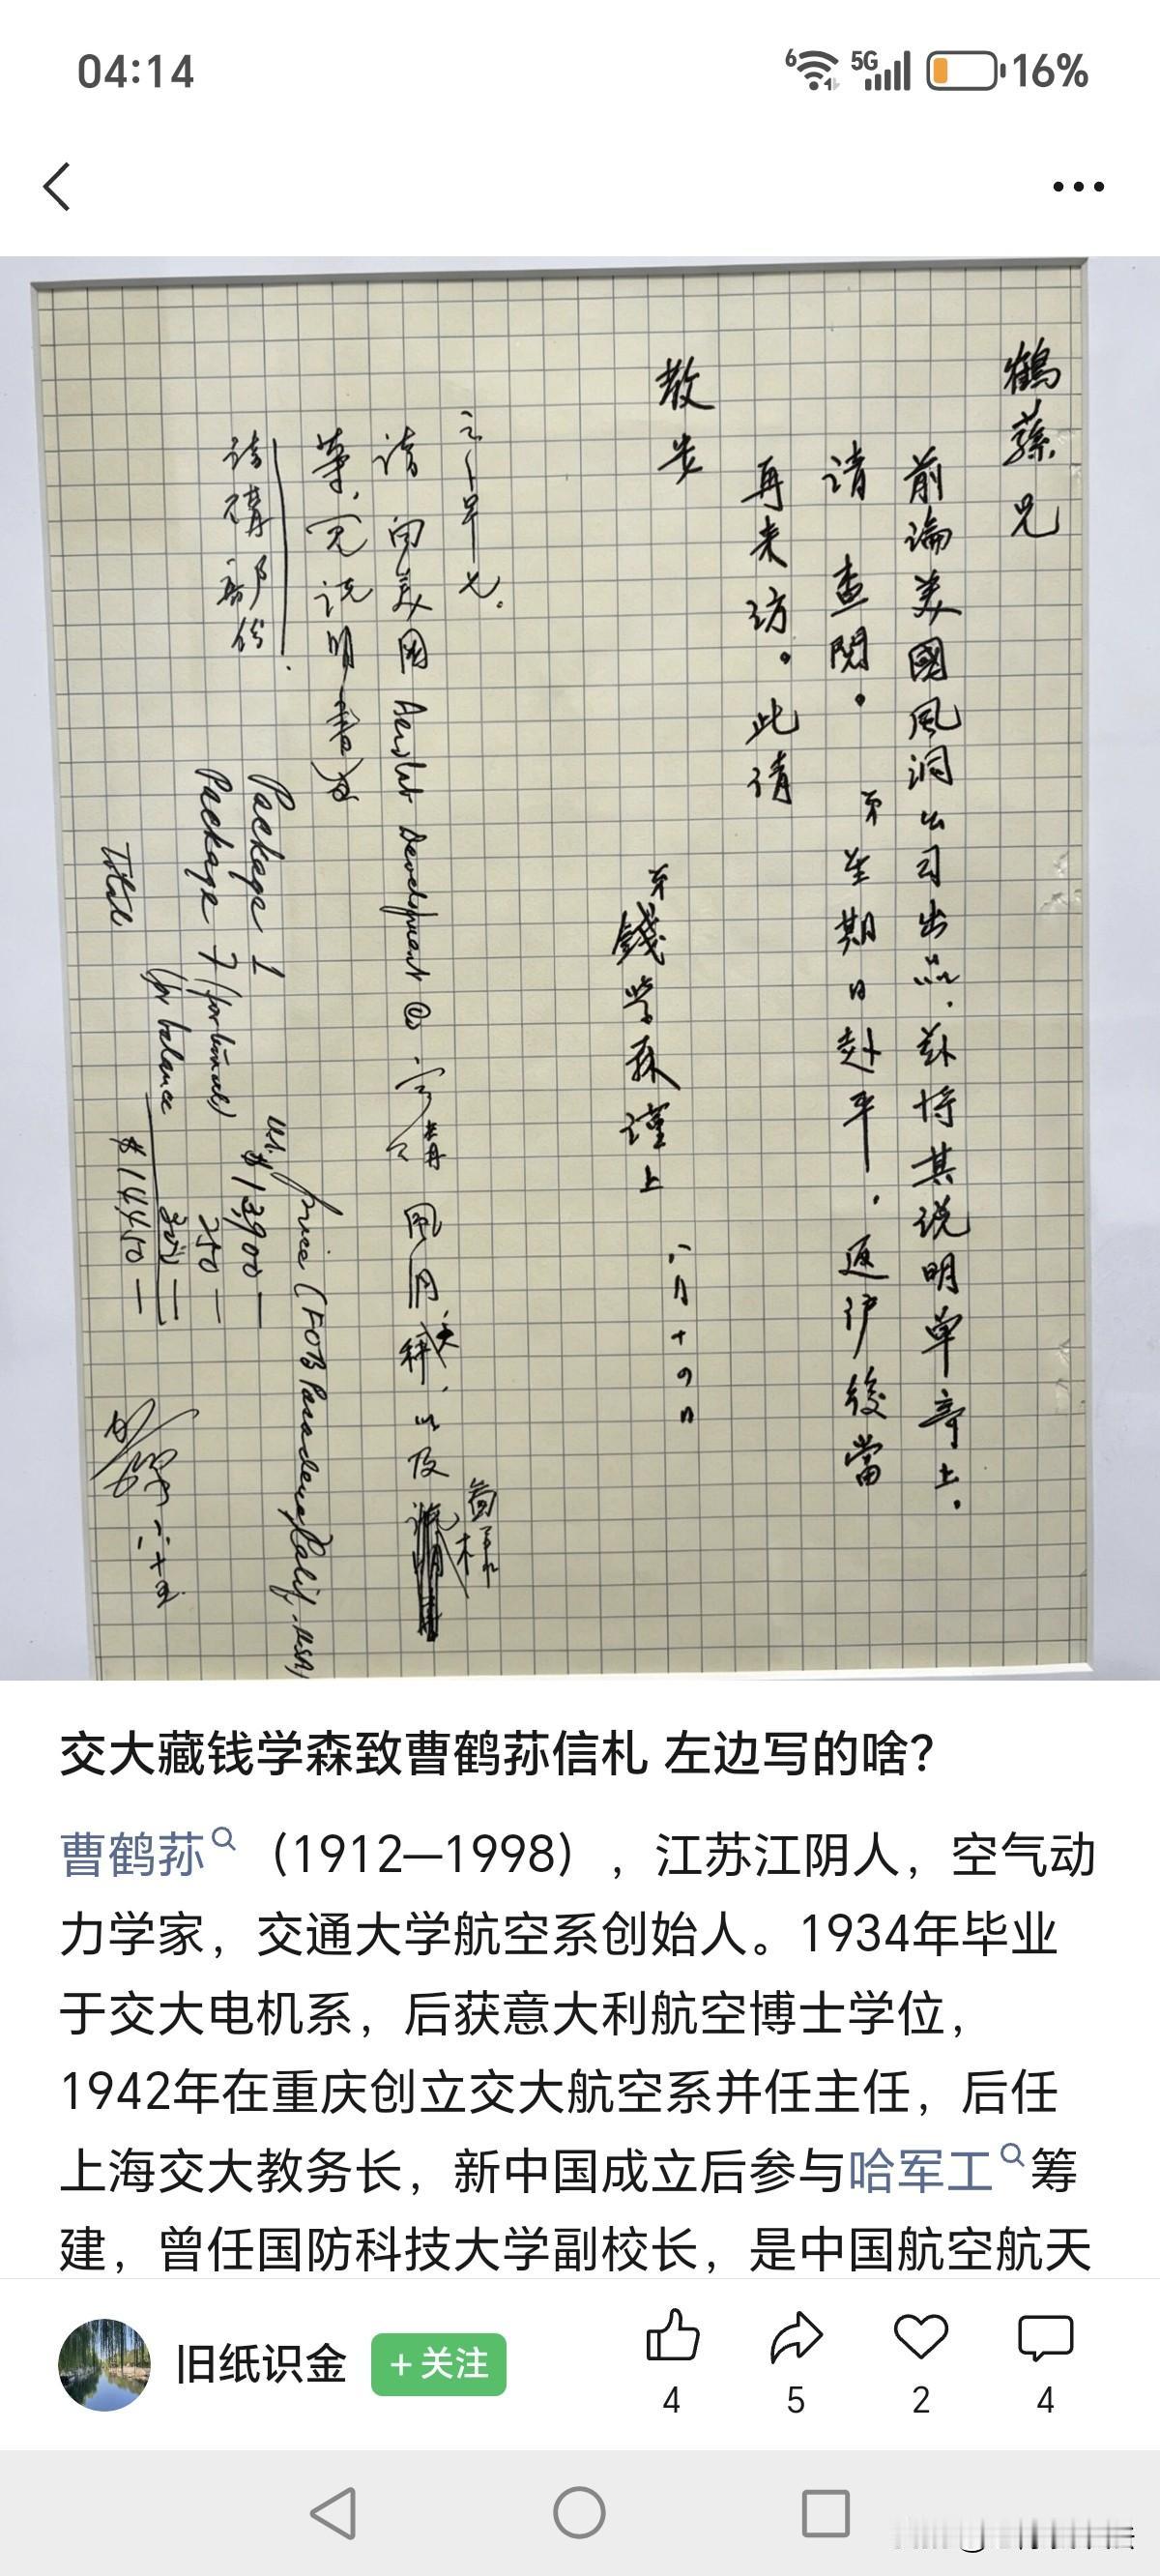 04:14
6 5G 16%
鶴蓀兄
前論美國風洞公司出品，茲將其说明单寄上。
请 查閱。弟星期日赴平，返沪後當
再来访。此请
教安
弟 錢学森谨上
八月十四日
请向美國 Aerolab Development @ 订購風洞天秤，以及
请購部份
Price (FOB Pasadena, Calif. USA)
Package 1 U.S. $13,900 —
Package 7 (for tunnel) 250 —
(for balance
Total $14450 —
交大藏钱学森致曹鹤荪信札 左边写的啥？
曹鹤荪（1912—1998），江苏江阴人，空气动
力学家，交通大学航空系创始人。1934年毕业
于交大电机系，后获意大利航空博士学位，
1942年在重庆创立交大航空系并任主任，后任
上海交大教务长，新中国成立后参与哈军工筹
建，曾任国防科技大学副校长，是中国航空航天
旧纸识金 +关注
4 5 2 4